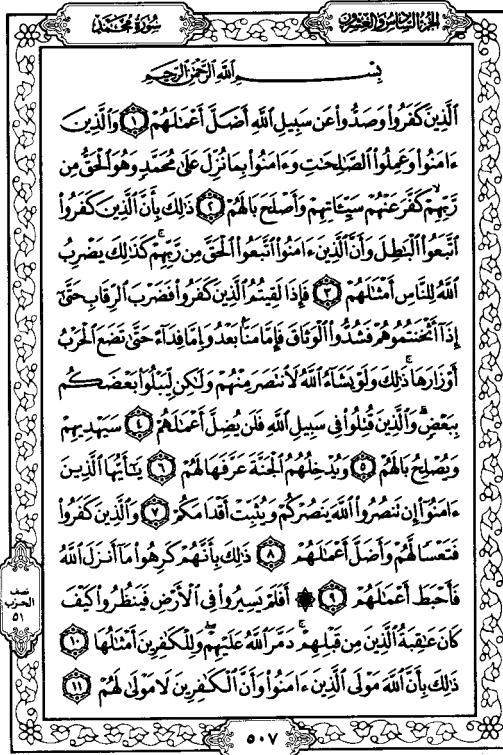 الجزء السادس والعشرون
سورة محمد
بِسْمِ اللَّهِ الرَّحْمَٰنِ الرَّحِيمِ
ٱلَّذِينَ كَفَرُوا۟ وَصَدُّوا۟ عَن سَبِيلِ ٱللَّهِ أَضَلَّ أَعْمَٰلَهُمْ ١ وَٱلَّذِينَ
ءَامَنُوا۟ وَعَمِلُوا۟ ٱلصَّٰلِحَٰتِ وَءَامَنُوا۟ بِمَا نُزِّلَ عَلَىٰ مُحَمَّدٍ وَهُوَ ٱلْحَقُّ مِن
رَّبِّهِمْ كَفَّرَ عَنْهُمْ سَيِّـَٔاتِهِمْ وَأَصْلَحَ بَالَهُمْ ٢ ذَٰلِكَ بِأَنَّ ٱلَّذِينَ كَفَرُوا۟
ٱتَّبَعُوا۟ ٱلْبَٰطِلَ وَأَنَّ ٱلَّذِينَ ءَامَنُوا۟ ٱتَّبَعُوا۟ ٱلْحَقَّ مِن رَّبِّهِمْ ۚ كَذَٰلِكَ يَضْرِبُ
ٱللَّهُ لِلنَّاسِ أَمْثَٰلَهُمْ ٣ فَإِذَا لَقِيتُمُ ٱلَّذِينَ كَفَرُوا۟ فَضَرْبَ ٱلرِّقَابِ حَتَّىٰٓ
إِذَآ أَثْخَنتُمُوهُمْ فَشُدُّوا۟ ٱلْوَثَاقَ فَإِمَّا مَنًّۢا بَعْدُ وَإِمَّا فِدَآءً حَتَّىٰ تَضَعَ ٱلْحَرْبُ
أَوْزَارَهَا ۚ ذَٰلِكَ وَلَوْ يَشَآءُ ٱللَّهُ لَٱنتَصَرَ مِنْهُمْ وَلَٰكِن لِّيَبْلُوَا۟ بَعْضَكُم
بِبَعْضٍ ۗ وَٱلَّذِينَ قُتِلُوا۟ فِى سَبِيلِ ٱللَّهِ فَلَن يُضِلَّ أَعْمَٰلَهُمْ ٤ سَيَهْدِيهِمْ
وَيُصْلِحُ بَالَهُمْ ٥ وَيُدْخِلُهُمُ ٱلْجَنَّةَ عَرَّفَهَا لَهُمْ ٦ يَٰٓأَيُّهَا ٱلَّذِينَ
ءَامَنُوٓا۟ إِن تَنصُرُوا۟ ٱللَّهَ يَنصُرْكُمْ وَيُثَبِّتْ أَقْدَامَكُمْ ٧ وَٱلَّذِينَ كَفَرُوا۟
فَتَعْسًا لَّهُمْ وَأَضَلَّ أَعْمَٰلَهُمْ ٨ ذَٰلِكَ بِأَنَّهُمْ كَرِهُوا۟ مَآ أَنزَلَ ٱللَّهُ
فَأَحْبَطَ أَعْمَٰلَهُمْ ٩ ۞ أَفَلَمْ يَسِيرُوا۟ فِى ٱلْأَرْضِ فَيَنظُرُوا۟ كَيْفَ
كَانَ عَٰقِبَةُ ٱلَّذِينَ مِن قَبْلِهِمْ ۚ دَمَّرَ ٱللَّهُ عَلَيْهِمْ ۖ وَلِلْكَٰفِرِينَ أَمْثَٰلُهَا ١٠
ذَٰلِكَ بِأَنَّ ٱللَّهَ مَوْلَى ٱلَّذِينَ ءَامَنُوا۟ وَأَنَّ ٱلْكَٰفِرِينَ لَا مَوْلَىٰ لَهُمْ ١١
نصف
الحزب
٥١
٥٠٧